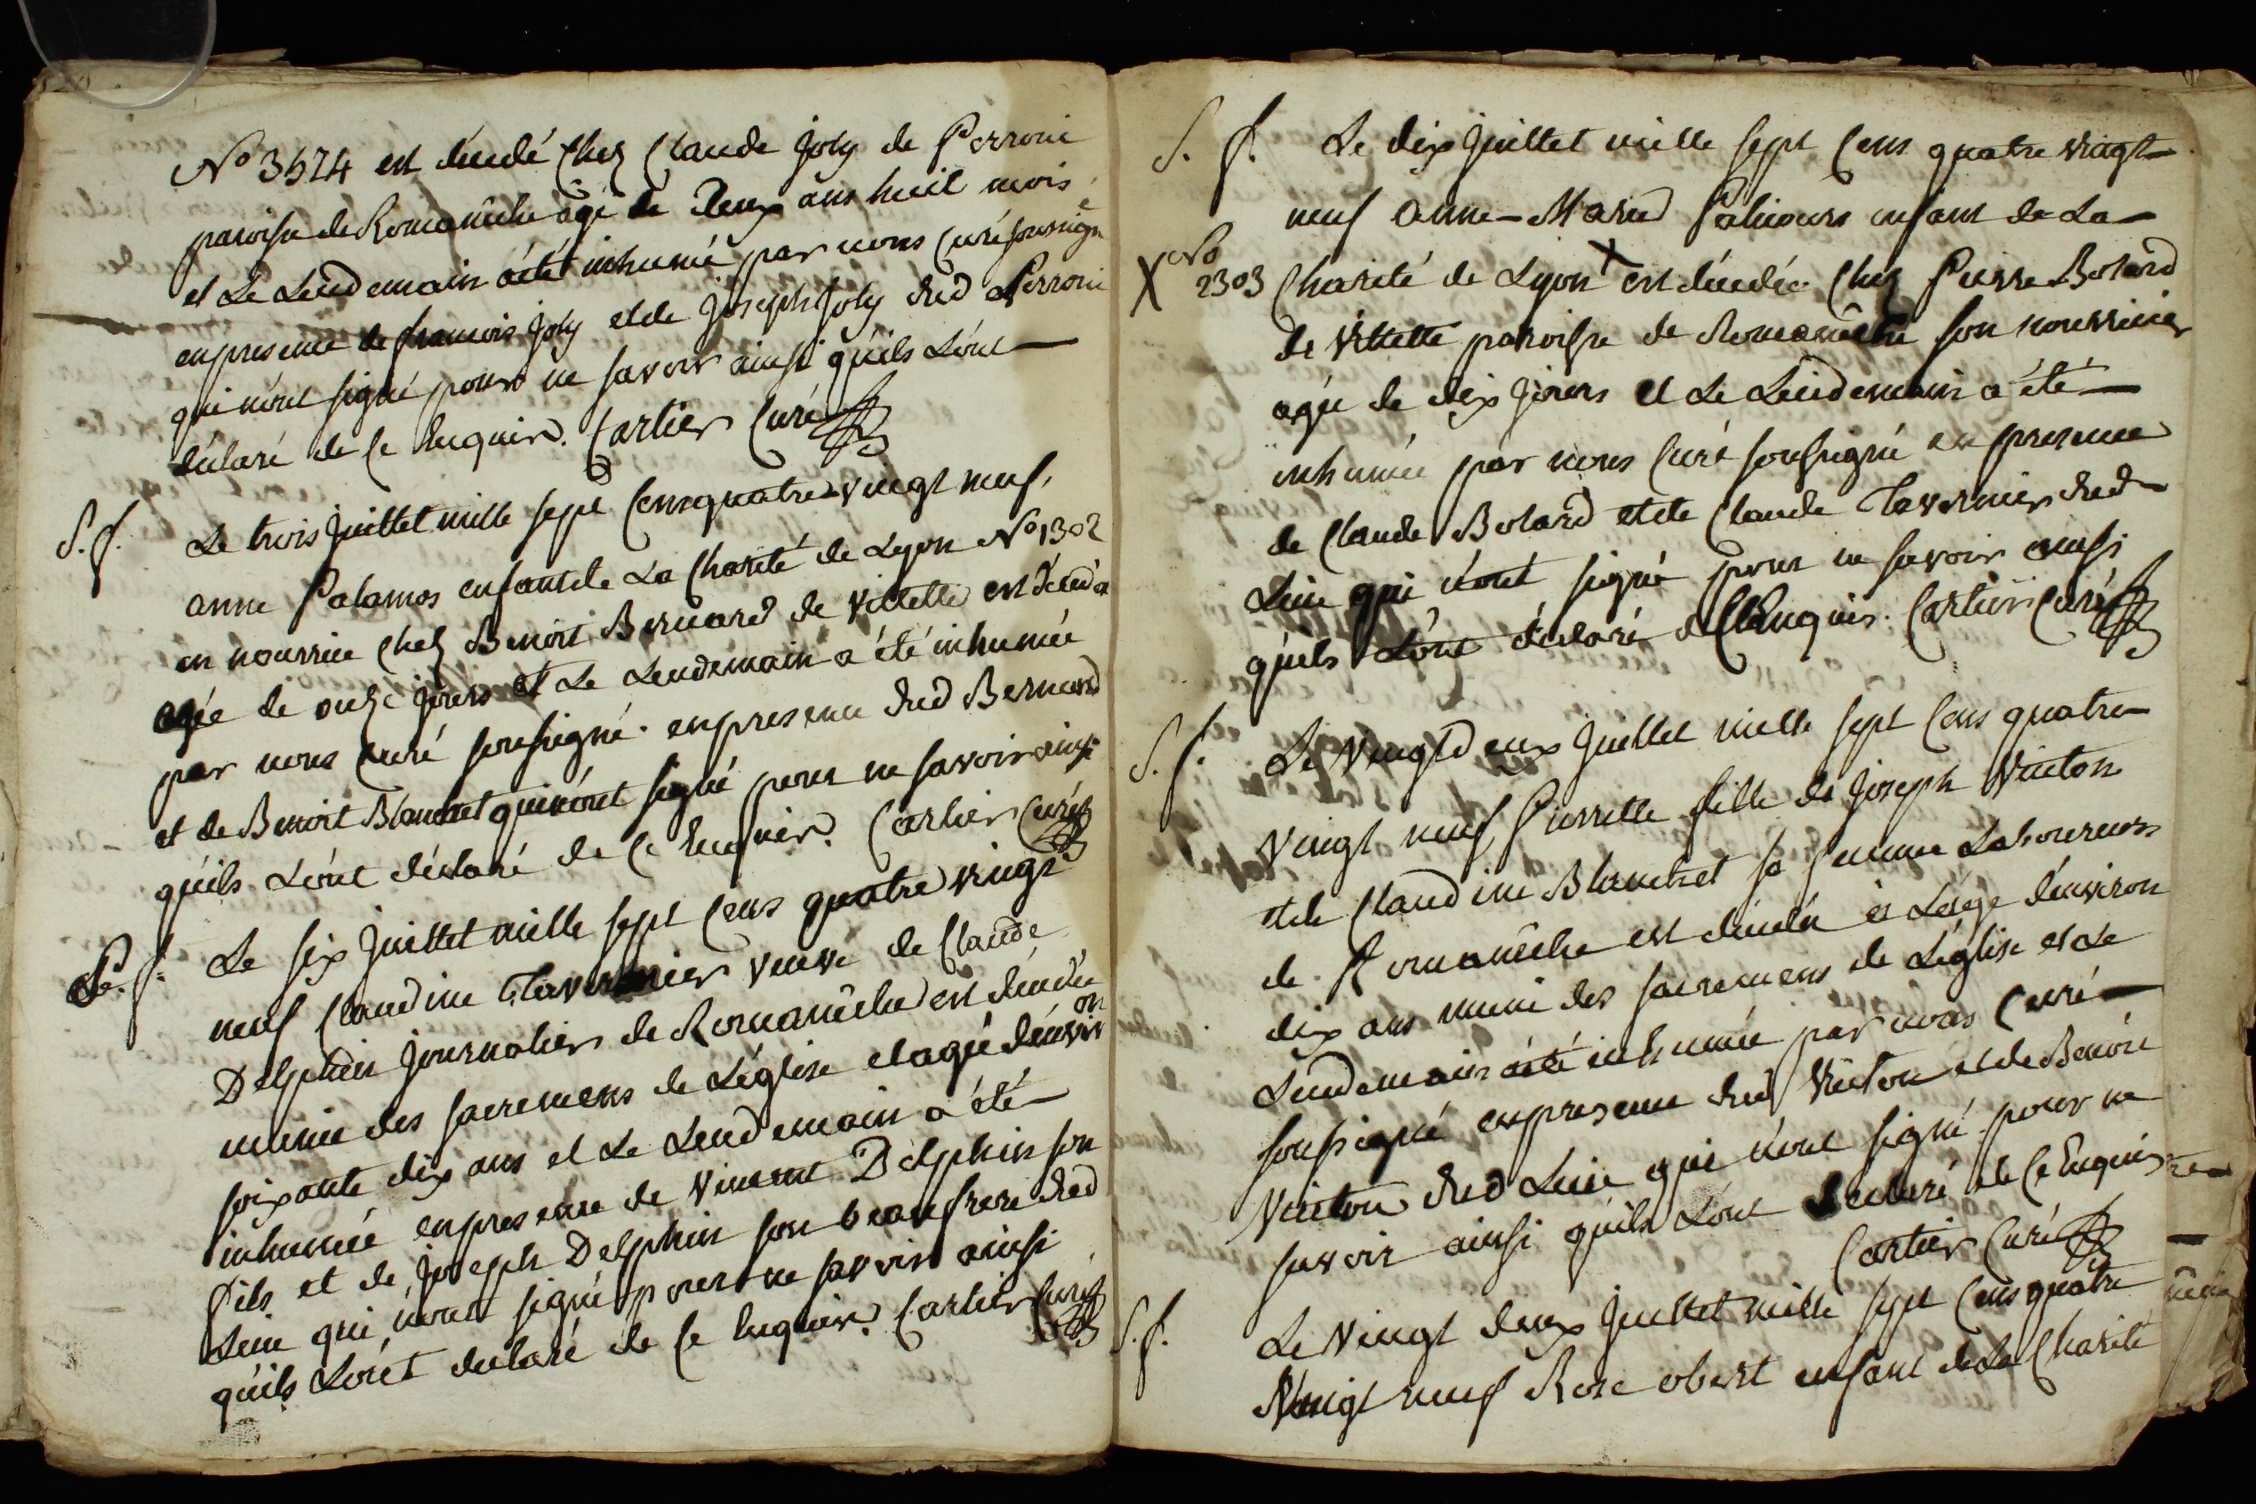 No 3574 est décédé chez Claude Joly de Perroni
paroisse de Romanêche agé de deux ans huit mois
et Le Lendemain a été inhumé par nous curé soussigné
en presence de francois Joly et de Joseph Joly dud Perroni
qui n'ont signé pour ne savoir ainsi quils L'ont
déclaré de ce Enquis. Cartier Curé
S. f. Le trois Juillet mille sept cens quatre vingt neuf,
anne Palamos enfant de La Charité de Lyon No 1302
en nourrice chez Benoit Bernard de Villette est décédée
agée de onze jours et Le Lendemain a été inhumée
par nous curé soussigné en presence dud Bernard
et de Benoit Blanchet qui n'ont signé pour ne savoir ainsi
quils L'ont déclaré de ce Enquis. Cartier Curé
f. Le six Juillet mille sept cens quatre vingt
neuf Claudine Tavernier veuve de Claude
Delphin journalier de Romanêche est décédée
munie des sacremens de L'église et agé d'environ
soixante dix ans et Le Lendemain a été
inhumée en presence de Vincent Delphin son
fils et de Joseph Delphin son beaufrere dud
Lieu qui n'ont signé pour ne savoir ainsi
quils L'ont declaré de ce Enquis. Cartier Curé
S. f. Le dix Juillet mille sept cens quatre vingt
neuf anne Marie enfant de La
X No 2303 Charité de Lyon X est décédée chez Pierre Botard
de Villette paroisse de Romanêche son nourricier
agée de dix jours et Le Lendemain a été
inhumée par nous Curé soussigné en presence
de Claude Botard et de Claude Tavernier dud
Lieu qui n'ont signé pour ne savoir ainsi
quils L'ont déclaré de ce Enquis. Cartier Curé
S. f. Le Vingt deux Juillet mille sept cens quatre
vingt neuf Pierrette fille de Joseph Vuiton
et de Claudine Blanchet sa femme Laboureurs
de Romanêche est décédée à L'age d'environ
dix ans munie des sacremens de L'église et Le
Lendemain a été inhumée par nous Curé
soussigné en presence dud Vuiton et de Benoit
Vuiton dud Lieu qui n'ont signé pour ne
savoir ainsi quils L'ont declaré de ce Enquis
Cartier Curé
S. f. Le Vingt deux Juillet mille sept cens quatre
Vingt neuf Rose obert enfant de La Charité